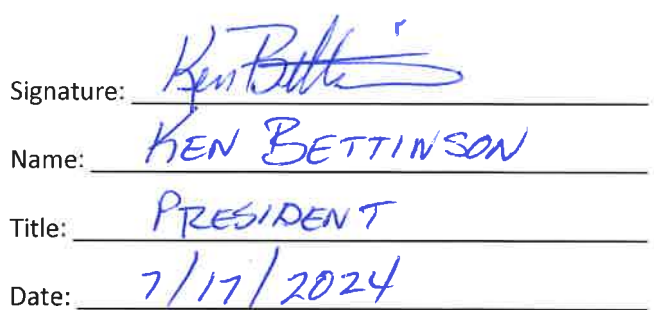 Signature: Ken Bettinson
Name: KEN BETTINSON
Title: PRESIDENT
Date: 7/17/2024